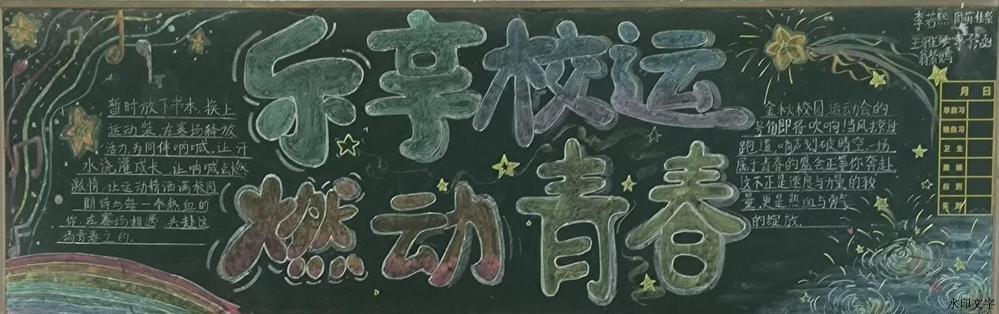 乐享校运
燃动青春
暂时放下书本,换上
运动装,在赛场释放
活力,为同伴呐喊,让汗
水浇灌成长,让呐喊点燃
激情,让运动精洒满校园
期待与每一个热血的
你,在赛场相遇,共赴这
场青春之约.
金秋校园运动会的
号角即将吹响!当风掠过
跑道,哨声划破晴空,一场
属于青春的盛会正等你奔赴,
这不止是速度与力量的较
量,更是热血与勇气
的绽放.
李若熙 周萌佳
王雅 李子涵
月 日
早自习
晚自习
卫 生
水印文字